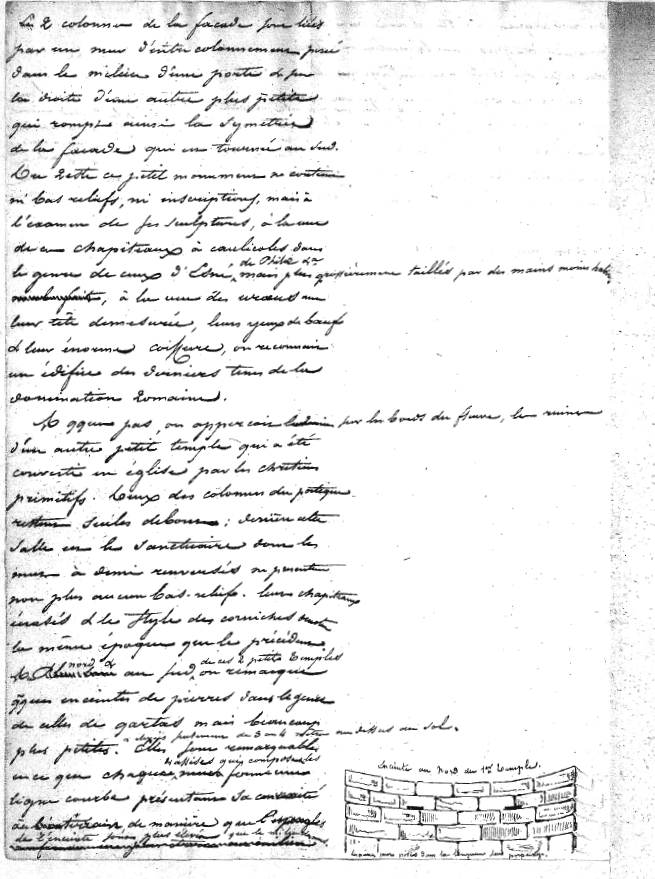 Les 2 colonnes de la facade sont liées
par un mur d'entre colonnement percé
dans le milieu d'une porte & sur
la droite d'une autre plus petite
qui rompt ainsi la symétrie
de la facade qui est tournée au sud.
Du reste ce petit monument ne contient
ni bas reliefs, ni inscriptions, mais à
l'examen de ses sculptures, à la vue
de ces chapiteaux à caulicoles dans
le genre de ceux d'Esné, de Philæ &a mais plus grossièrement taillés par des mains moins habiles
à la vue des uraeus avec
leur tête demesurée, leurs yeux de bœuf
& leur énorme coiffure, on reconnait
un édifice des derniers tems de la
domination Romaine.
A qques pas, on apperçoit sur les bords du fleuve, les ruines
d'un autre petit temple qui a été
converti en église par les chrétiens
primitifs. Deux des colonnes du portique
restent seules debout; derrière cette
salle est le sanctuaire dont les
murs à demi renversés ne présentent
non plus aucun bas-relief. leurs chapiteaux
évasés & le style des corniches
la même époque que le précédent.
Au nord & au sud de ces 2 petits temples on remarque
qques enceintes de pierres dans le genre
de celles de gartas mais beaucoup
plus petites. Elles sont remarquables au dessus du sol.
en ce que chaque assises qui composent les murs forme une
ligne courbe présentant sa convexité
de manière que les angles
de l'enceinte sont plus élevés que le milieu
Enceinte au Nord du 1er Temple.